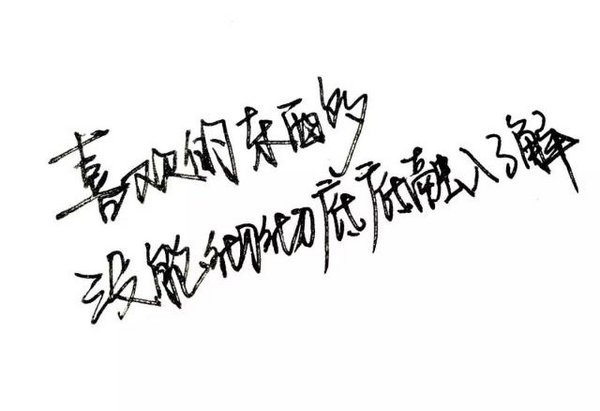 喜欢的东西都
没能彻彻底底融入了解